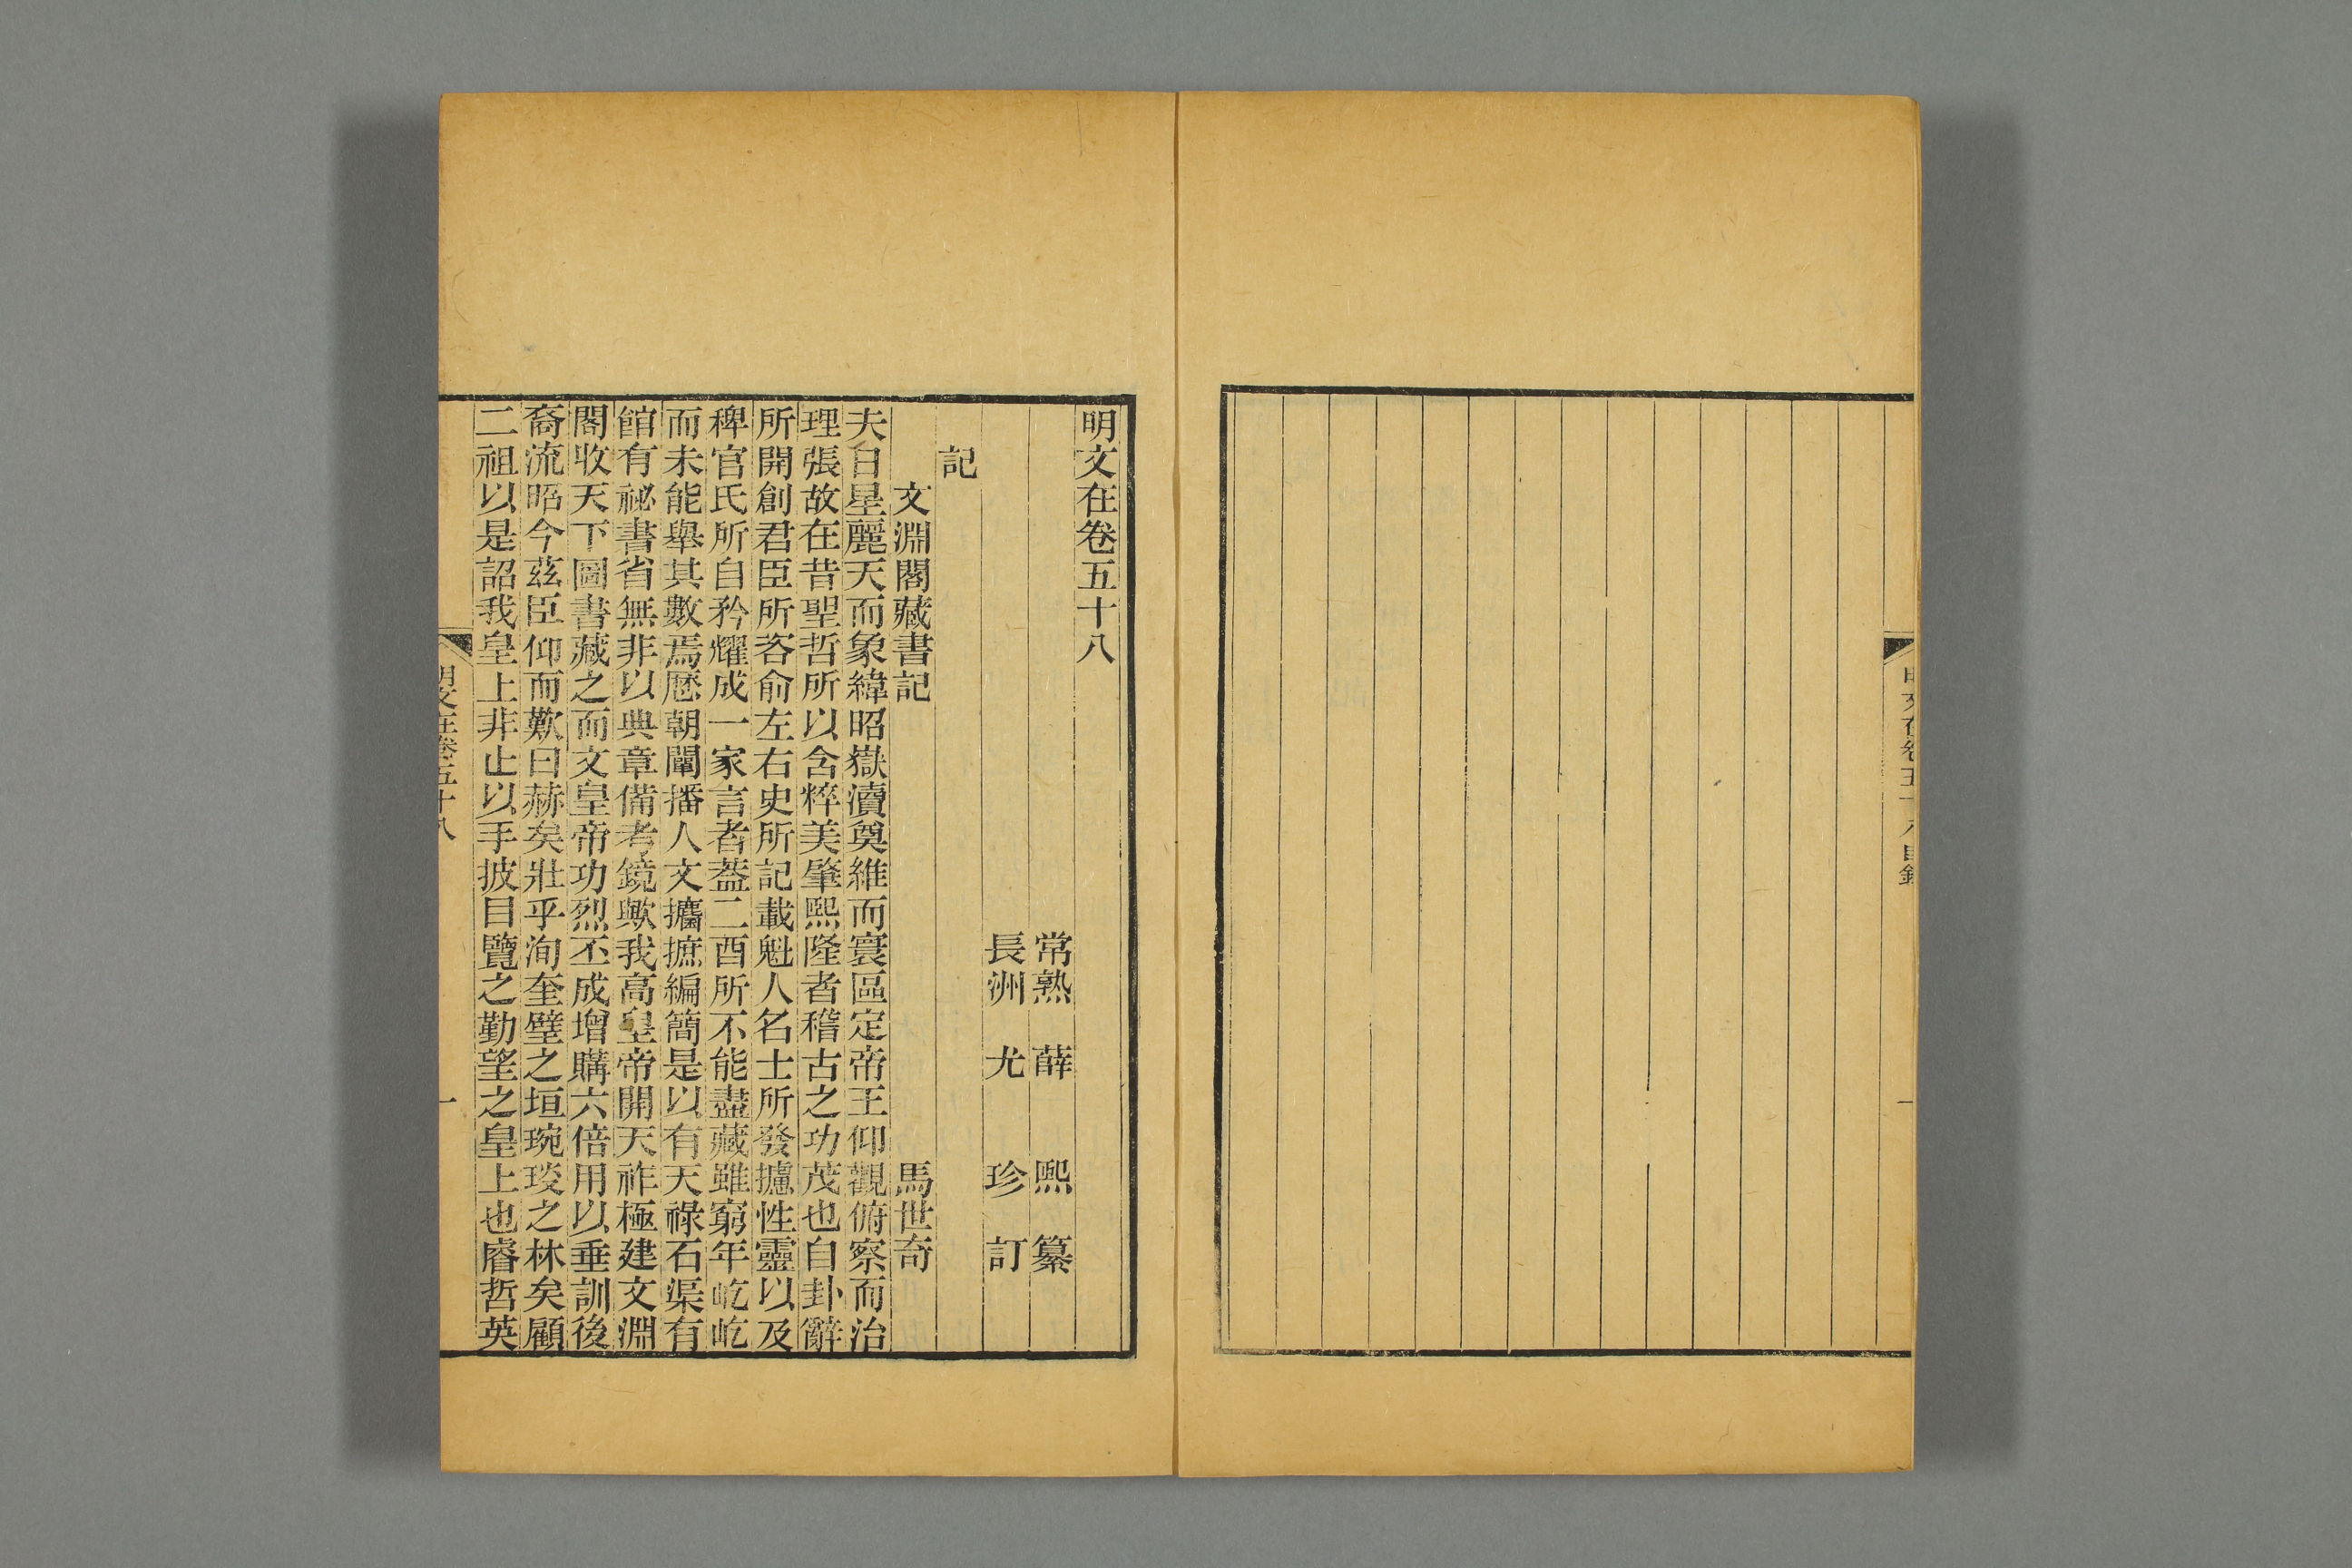 明文在卷五十八
常熟 薛 熙 纂
長洲 尤 珍 訂
記
文淵閣藏書記 馬世奇
夫日星麗天而象緯昭嶽瀆奠維而寰區定帝王仰觀俯察而治
理張故在昔聖哲所以含粹美肇熙隆者稽古之功茂也自卦辭
所開創君臣所咨俞左右史所記載魁人名士所發攄性靈以及
稗官氏所自矜耀成一家言者蓋二酉所不能盡藏雖窮年屹屹
而未能舉其數焉歷朝闡播人文攟摭編簡是以有天祿石渠有
館有祕書省無非以典章備考鏡歟我高皇帝開天祚極建文淵
閣收天下圖書藏之而文皇帝功烈丕成增購六倍用以垂訓後
裔流昭今茲臣仰而歎曰赫矣壯乎洵奎璧之垣琬琰之林矣顧
二祖以是詔我皇上非止以手披目覽之勤望之皇上也睿哲英
明文在卷五十八 一